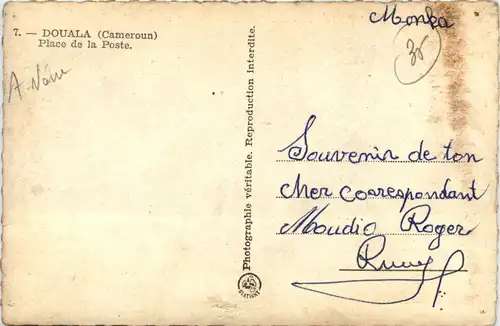 7. — DOUALA (Cameroun)
Place de la Poste.
Photographie véritable. Reproduction interdite.
Monka
30
Souvenir de ton
cher correspondant
Moudio Roger